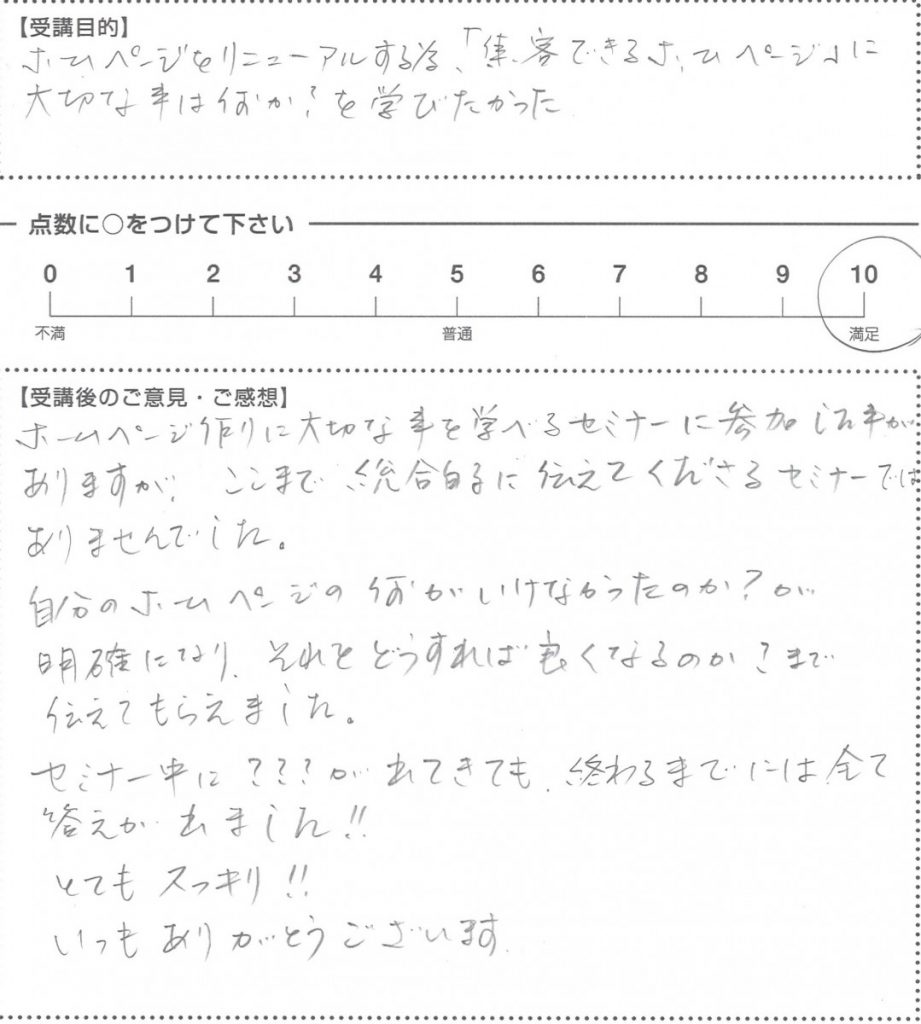 【受講目的】
ホームページをリニューアルする為、「集客できるホームページ」に
大切な事は何か?を学びたかった
点数に○をつけて下さい
0 1 2 3 4 5 6 7 8 9 10
不満 普通 満足
【受講後のご意見・ご感想】
ホームページ作りに大切な事を学べるセミナーに参加した事が
ありますが、ここまで総合的に伝えてくださるセミナーでは
ありませんでした。
自分のホームページの何がいけなかったのか?が
明確になり、それをどうすれば良くなるのか?まで
伝えてもらえました。
セミナー中に???が出てきても、終わるまでには全て
答えが出ました!!
とてもスッキリ!!
いつもありがとうございます。